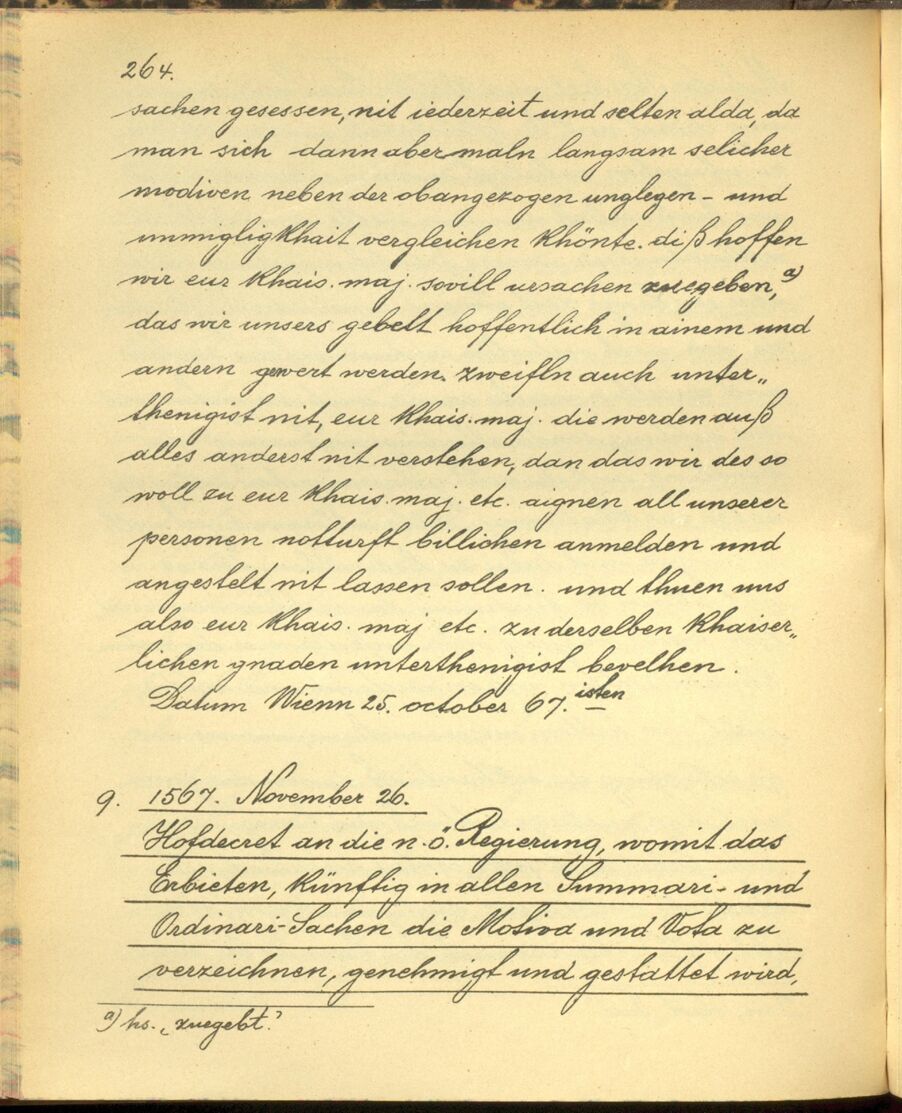 264.
sachen gesessen, nit iederzeit und selten alda, da
man sich dann abermaln langsam selicher
modiven neben der obangezogen unglegen- und
unmigligkhait vergleichen khönte. diß hoffen
wir eur khais. maj. sovill ursachen zuegeben,ᵃ⁾
das wir unsers gebett hoffentlich in ainem und
andern gewert werden. zweifln auch unter„
thenigist nit, eur khais. maj. die werden auß
alles anderst nit verstehen, dan das wir des so
woll zu eur khais. maj. etc. aignen all unserer
personen notturft billichen anmelden und
angestelt nit lassen sollen. und thuen uns
also eur khais. maj etc. zu derselben khaiser„
lichen gnaden unterthenigist bevelhen.
Datum Wienn 25. october 67.isten
9. 1567. November 26.
Hofdecret an die n.ö. Regierung, womit das
Erbieten, künftig in allen Summari- und
Ordinari-Sachen die Motiva und Vota zu
verzeichnen, genehmigt und gestattet wird,
a) hs. ‚zuegebt.‘